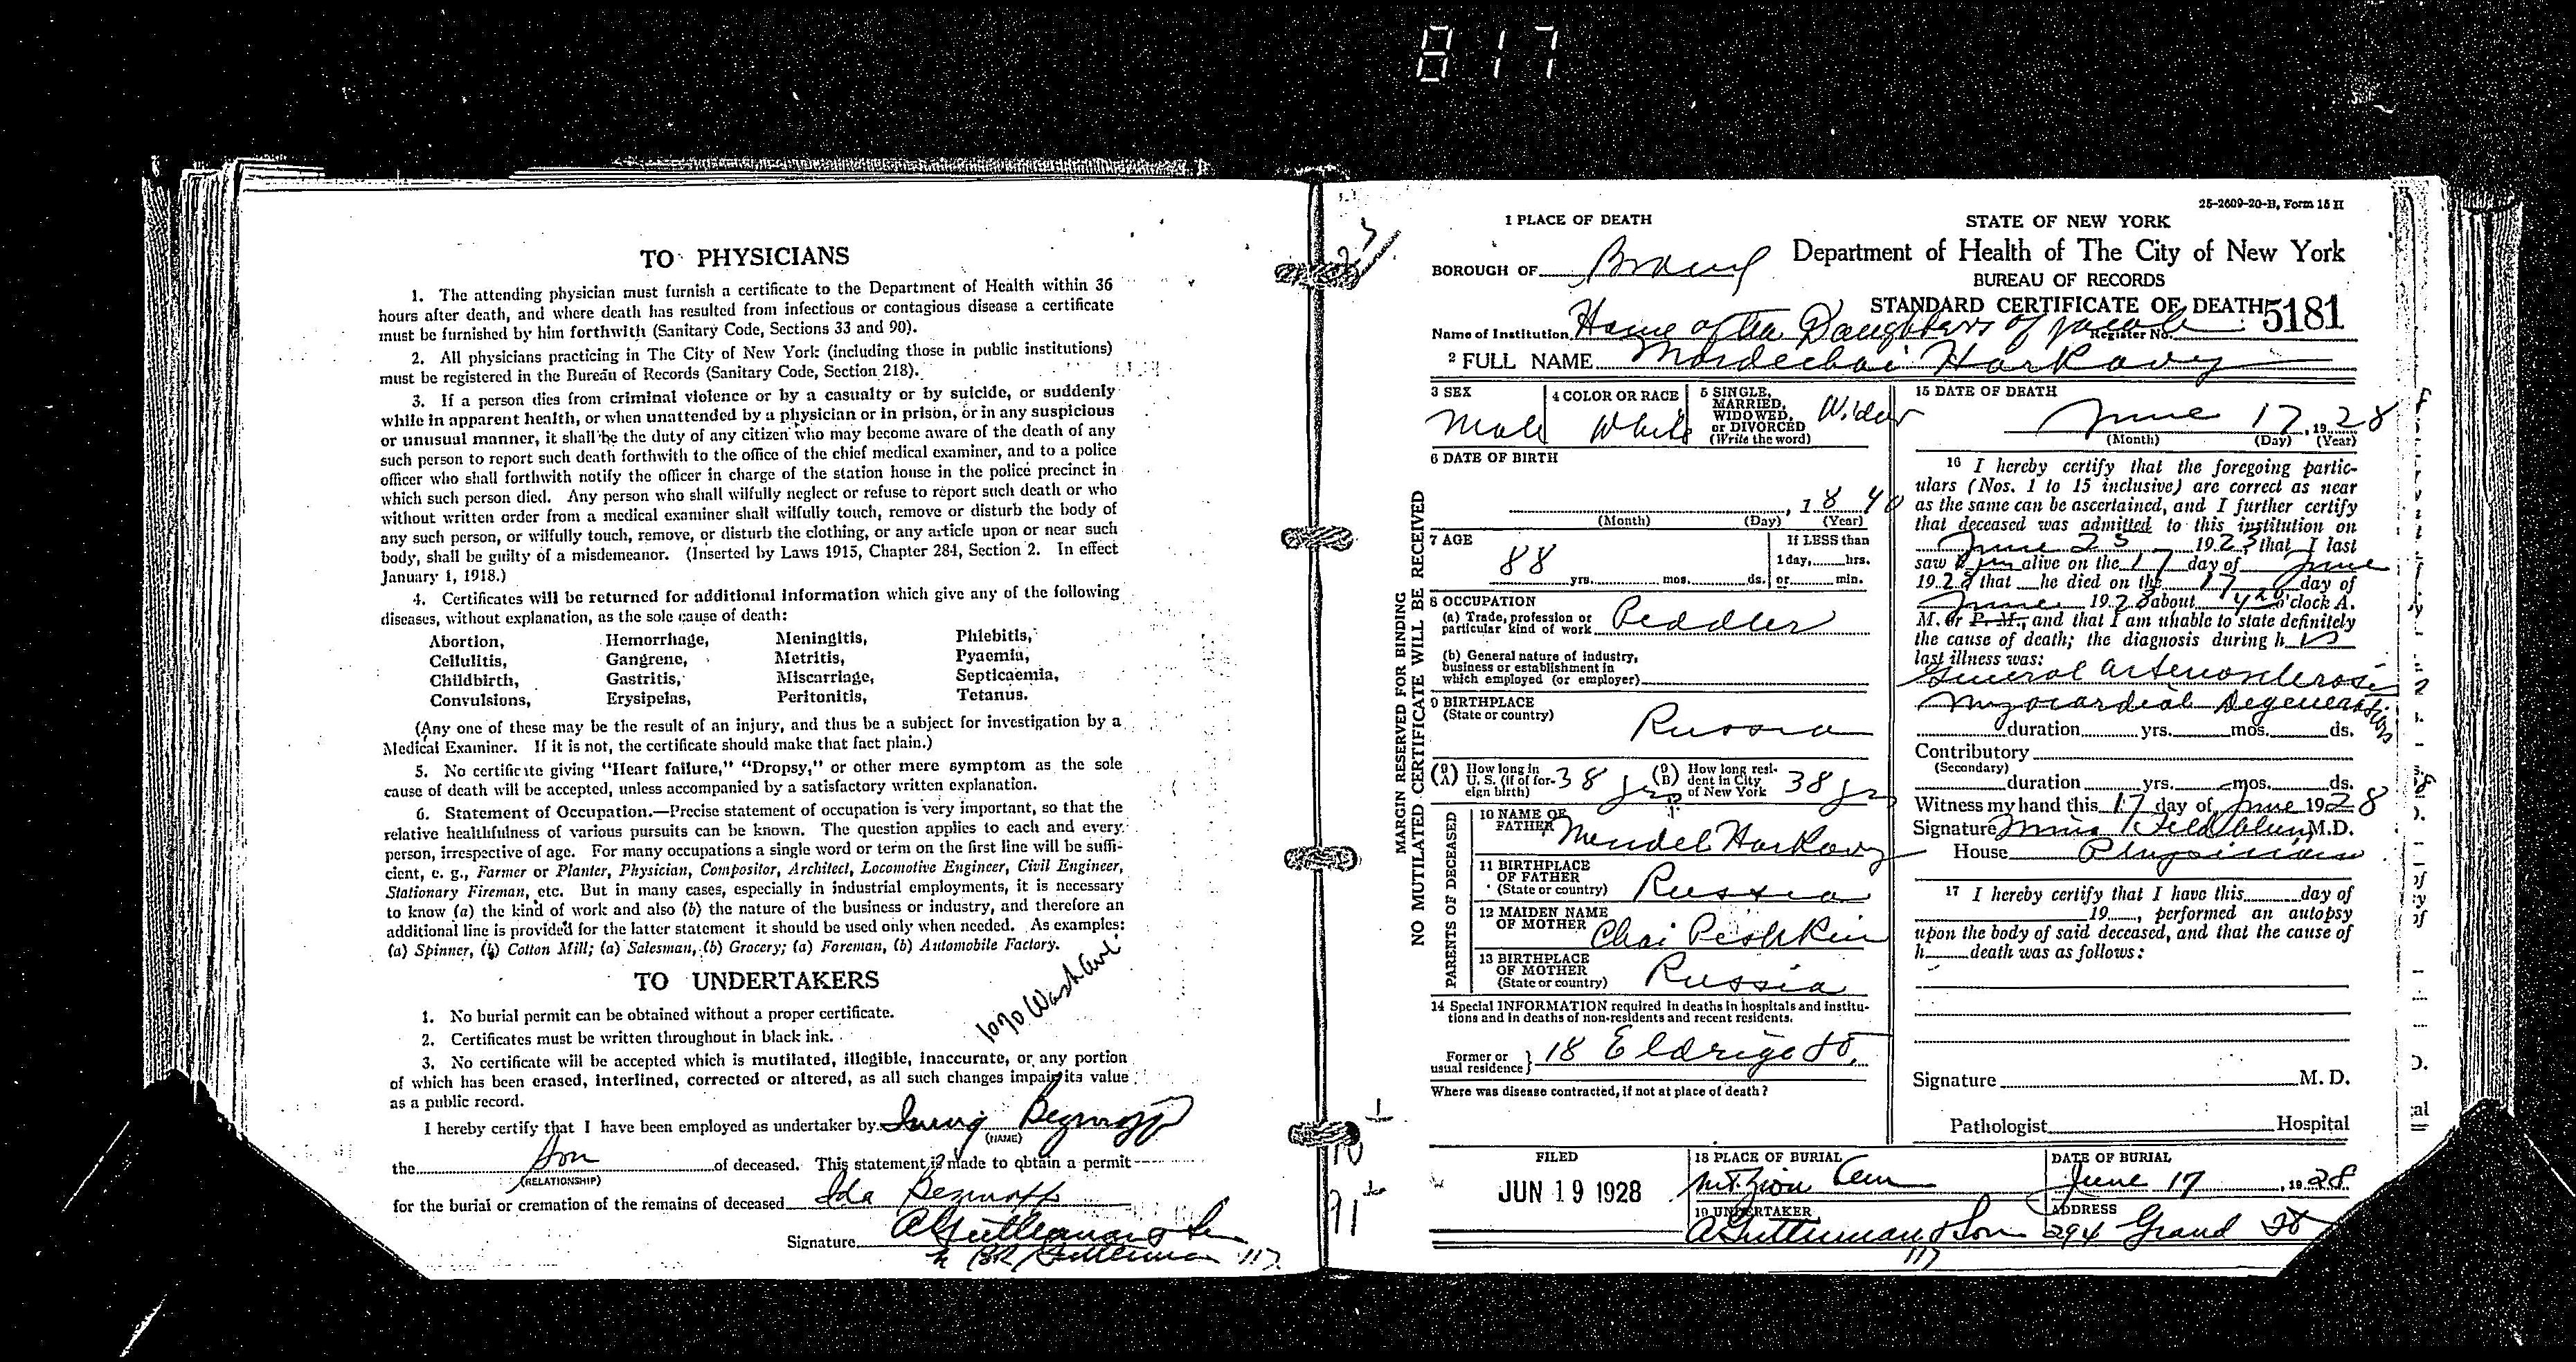 817
TO PHYSICIANS
1. The attending physician must furnish a certificate to the Department of Health within 36
hours after death, and where death has resulted from infectious or contagious disease a certificate
must be furnished by him forthwith (Sanitary Code, Sections 33 and 90).
2. All physicians practicing in The City of New York (including those in public institutions)
must be registered in the Bureau of Records (Sanitary Code, Section 218).
3. If a person dies from criminal violence or by a casualty or by suicide, or suddenly
while in apparent health, or when unattended by a physician or in prison, or in any suspicious
or unusual manner, it shall be the duty of any citizen who may become aware of the death of any
such person to report such death forthwith to the office of the chief medical examiner, and to a police
officer who shall forthwith notify the officer in charge of the station house in the police precinct in
which such person died. Any person who shall wilfully neglect or refuse to report such death or who
without written order from a medical examiner shall wilfully touch, remove or disturb the body of
any such person, or wilfully touch, remove, or disturb the clothing, or any article upon or near such
body, shall be guilty of a misdemeanor. (Inserted by Laws 1915, Chapter 284, Section 2. In effect
January 1, 1918.)
4. Certificates will be returned for additional information which give any of the following
diseases, without explanation, as the sole cause of death:
Abortion, Hemorrhage, Meningitis, Phlebitis,
Cellulitis, Gangrene, Metritis, Pyaemia,
Childbirth, Gastritis, Miscarriage, Septicaemia,
Convulsions, Erysipelas, Peritonitis, Tetanus.
(Any one of these may be the result of an injury, and thus be a subject for investigation by a
Medical Examiner. If it is not, the certificate should make that fact plain.)
5. No certificate giving "Heart failure," "Dropsy," or other mere symptom as the sole
cause of death will be accepted, unless accompanied by a satisfactory written explanation.
6. Statement of Occupation.—Precise statement of occupation is very important, so that the
relative healthfulness of various pursuits can be known. The question applies to each and every
person, irrespective of age. For many occupations a single word or term on the first line will be suffi-
cient, e. g., Farmer or Planter, Physician, Compositor, Architect, Locomotive Engineer, Civil Engineer,
Stationary Fireman, etc. But in many cases, especially in industrial employments, it is necessary
to know (a) the kind of work and also (b) the nature of the business or industry, and therefore an
additional line is provided for the latter statement it should be used only when needed. As examples:
(a) Spinner, (b) Cotton Mill; (a) Salesman, (b) Grocery; (a) Foreman, (b) Automobile Factory.
1090 Wash Ave
TO UNDERTAKERS
1. No burial permit can be obtained without a proper certificate.
2. Certificates must be written throughout in black ink.
3. No certificate will be accepted which is mutilated, illegible, inaccurate, or any portion
of which has been erased, interlined, corrected or altered, as all such changes impair its value
as a public record.
I hereby certify that I have been employed as undertaker by Irving
(NAME)
the Son of deceased. This statement is made to obtain a permit
(RELATIONSHIP)
for the burial or cremation of the remains of deceased Ida
Signature A Gutterman & Son
117
25-2609-20-B, Form 15 H
1 PLACE OF DEATH
BOROUGH OF Bronx
STATE OF NEW YORK
Department of Health of The City of New York
BUREAU OF RECORDS
STANDARD CERTIFICATE OF DEATH
Register No. 5181
Name of Institution Home of the Daughters of Jacob
2 FULL NAME Mordechai Harkavy
MARGIN RESERVED FOR BINDING
NO MUTILATED CERTIFICATE WILL BE RECEIVED
3 SEX
Male
4 COLOR OR RACE
White
5 SINGLE,
MARRIED,
WIDOWED,
or DIVORCED
(Write the word)
6 DATE OF BIRTH
1840
(Month) (Day) (Year)
7 AGE
88
yrs. mos. ds.
If LESS than
1 day, hrs.
or min.
8 OCCUPATION
(a) Trade, profession or
particular kind of work Peddler
(b) General nature of industry,
business or establishment in
which employed (or employer)
9 BIRTHPLACE
(State or country)
Russia
(9 A) How long in
U. S. (if of for-
eign birth) 38 yrs
(9 B) How long resi-
dent in City
of New York 38 yrs
PARENTS OF DECEASED
10 NAME OF
FATHER Mendel Harkavy
11 BIRTHPLACE
OF FATHER
(State or country) Russia
12 MAIDEN NAME
OF MOTHER Chai Peshkin
13 BIRTHPLACE
OF MOTHER
(State or country) Russia
14 Special INFORMATION required in deaths in hospitals and institu-
tions and in deaths of non-residents and recent residents.
Former or
usual residence } 18 Eldrige St.
Where was disease contracted, if not at place of death?
15 DATE OF DEATH
June 17, 1928
(Month) (Day) (Year)
16 I hereby certify that the foregoing partic-
ulars (Nos. 1 to 15 inclusive) are correct as near
as the same can be ascertained, and I further certify
that deceased was admitted to this institution on
June 25 1923 that I last
saw him alive on the 17 day of June
1928 that he died on the 17 day of
June 1928 about 4 20 o'clock A.
M. or P. M., and that I am unable to state definitely
the cause of death; the diagnosis during his
last illness was:
General arteriosclerosis
myocardial Degeneration
duration yrs. mos. ds.
Contributory
(Secondary)
duration yrs. mos. ds.
Witness my hand this 17 day of June 1928
Signature Feldblum M.D.
House Physician
17 I hereby certify that I have this day of
19 , performed an autopsy
upon the body of said deceased, and that the cause of
h death was as follows:
Signature M. D.
Pathologist Hospital
FILED
JUN 19 1928
18 PLACE OF BURIAL
Mt. Zion Cem
DATE OF BURIAL
June 17, 1928
19 UNDERTAKER
A Gutterman & Son
ADDRESS
294 Grand St
117